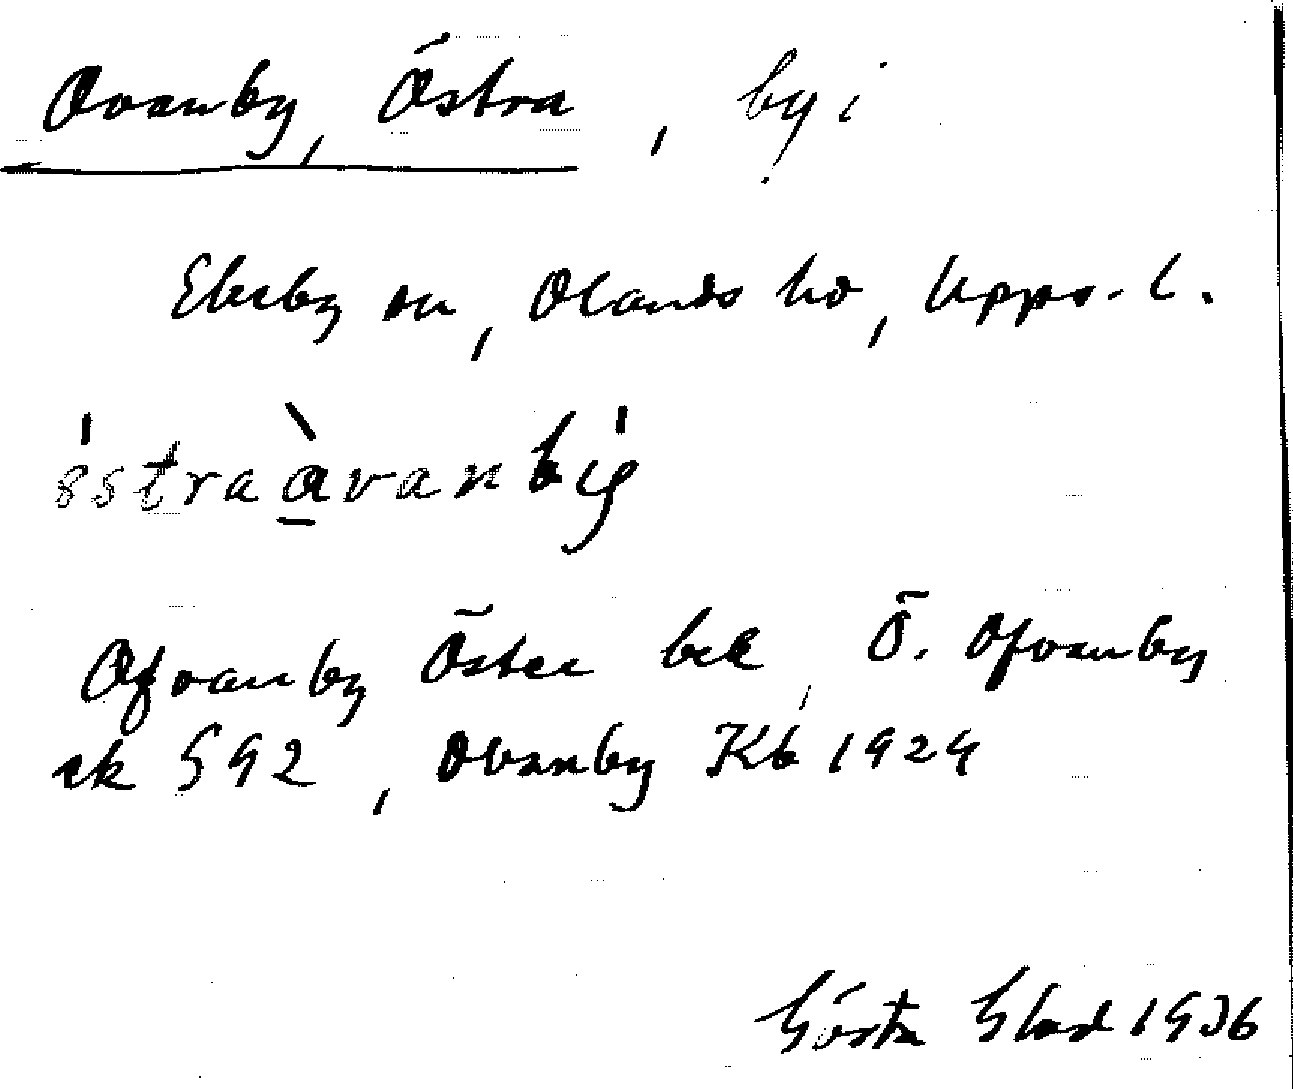 Ovanby, Östra, by i
Ekeby sn, Olands hd, Upps. l.
östra àvanbÿ
Ofvanby Öster bek, Ö. Ofvanby
ek 592, Ovanby Kb 1929
Gösta Blad 1936